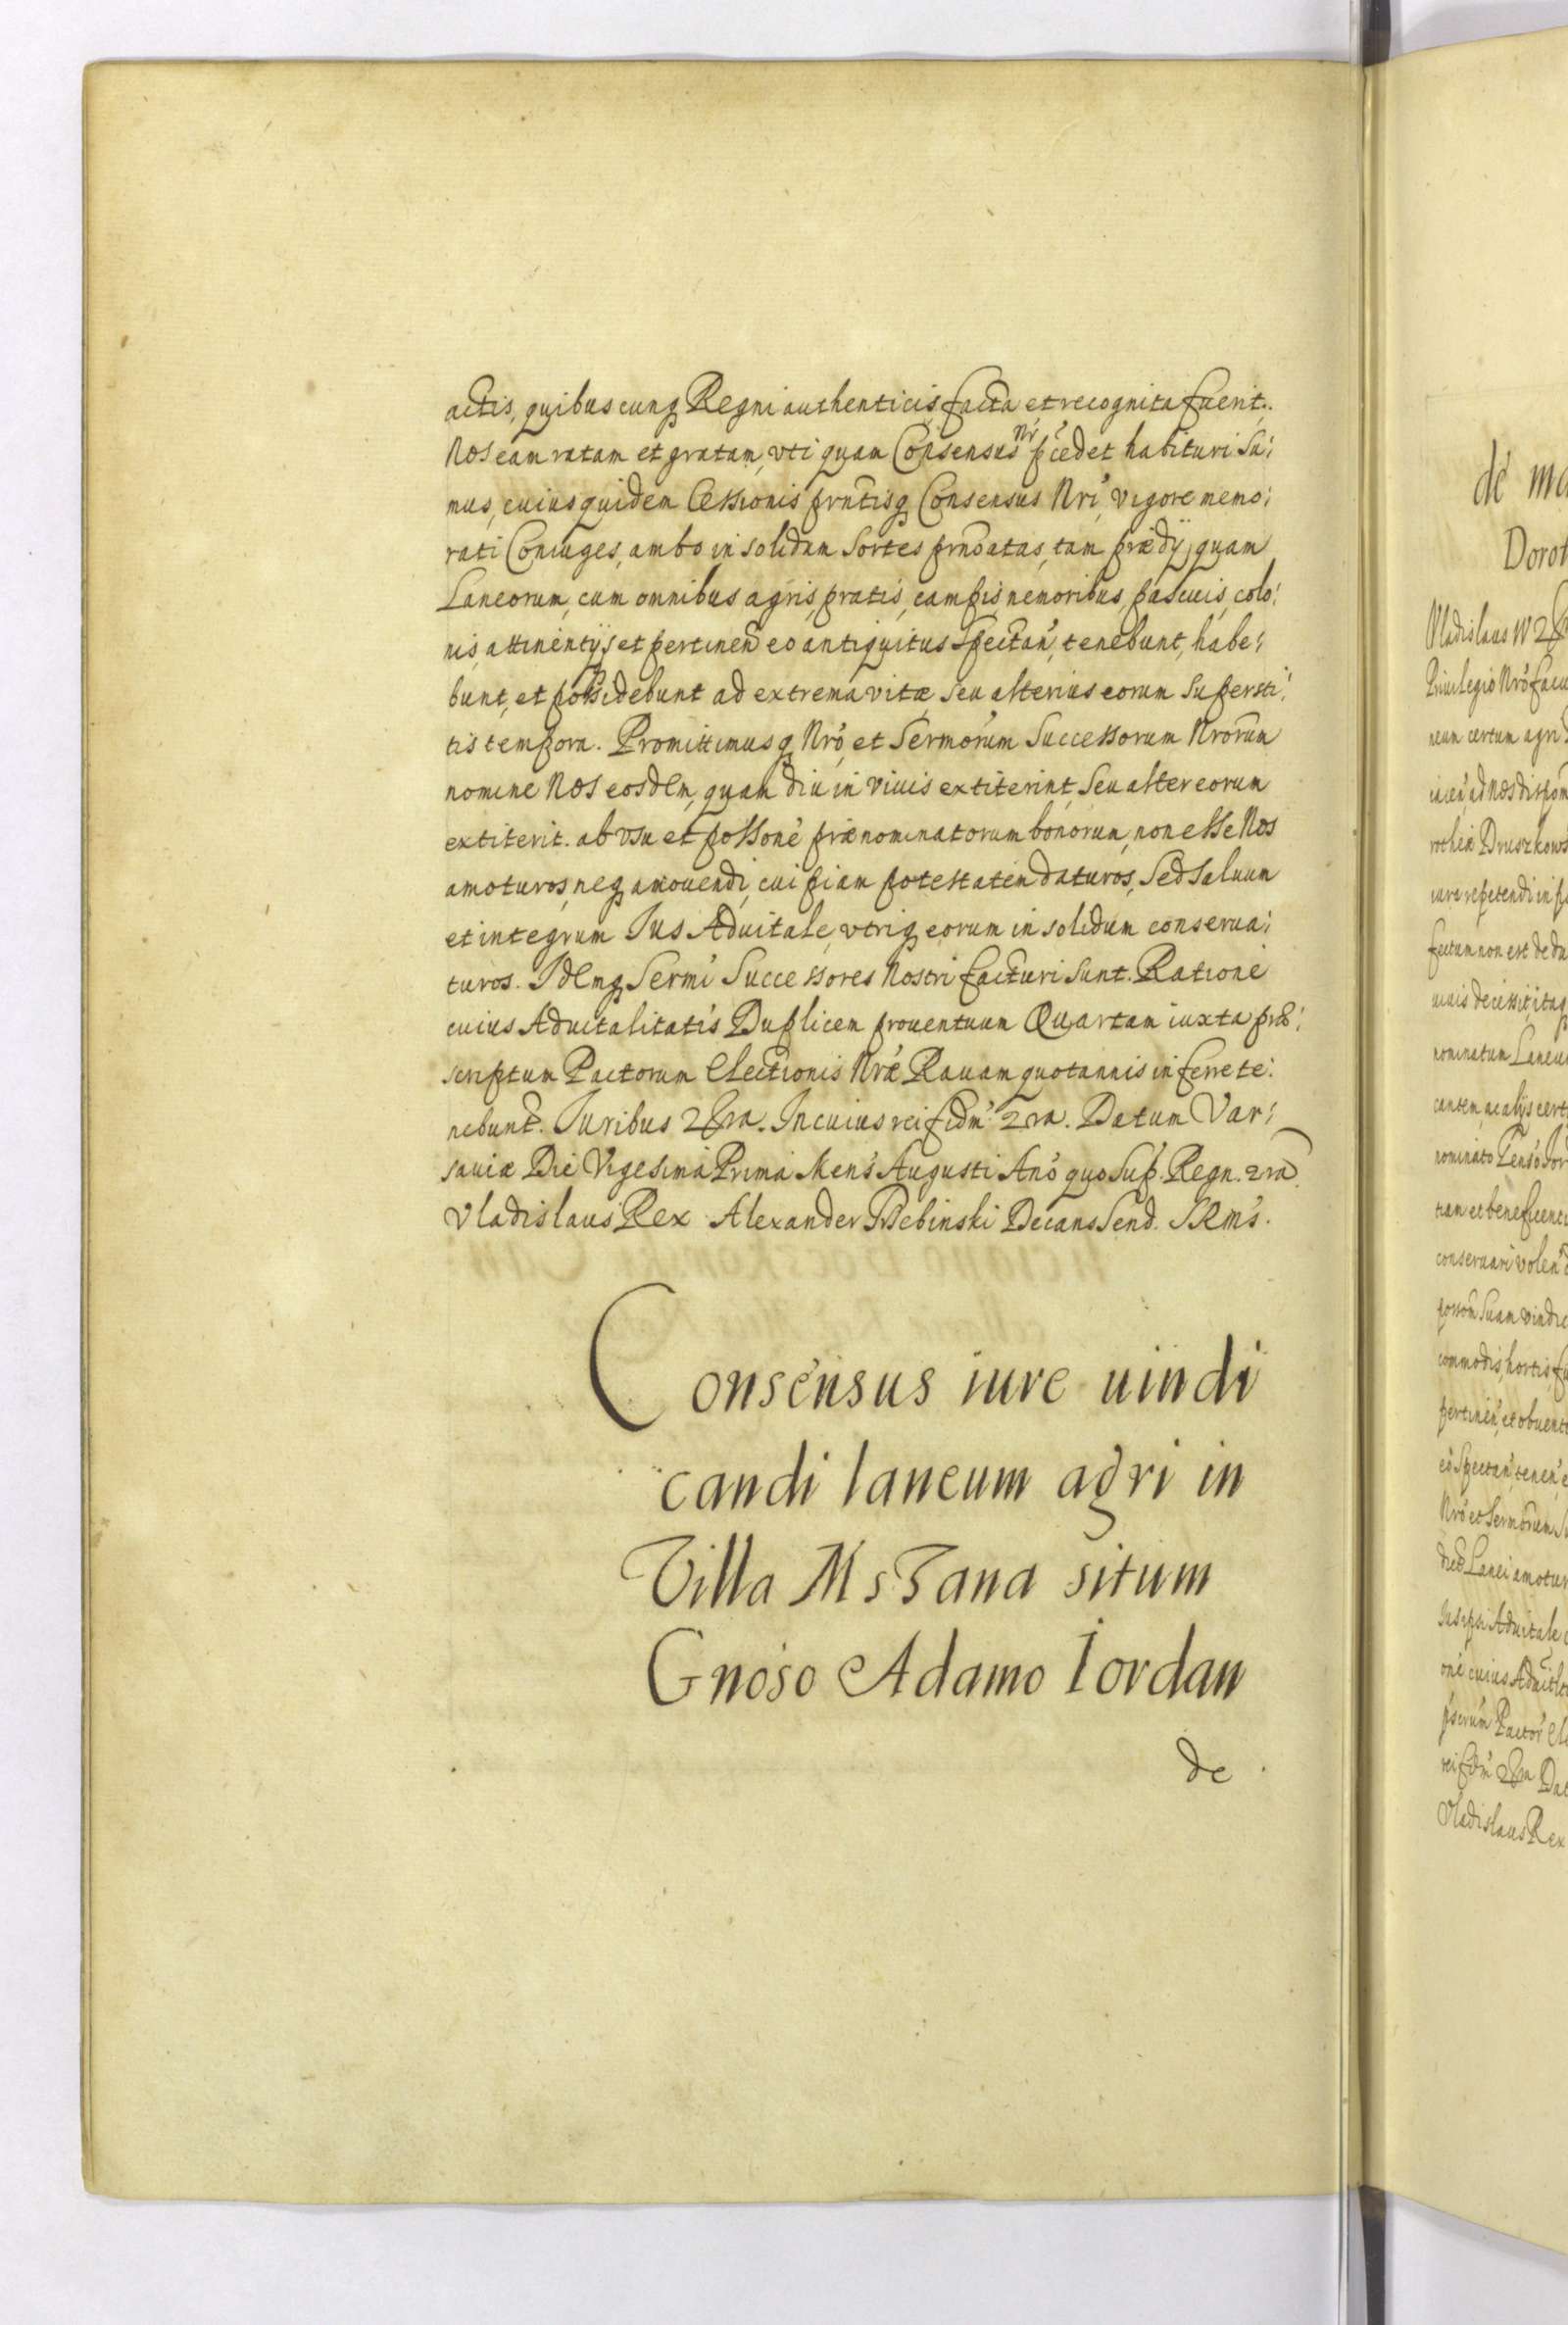 actis, quibuscunq Regni authenticis facta et recognita fuerit.
Nos eam ratam et gratam, vti quam Consensus Nr̃ pcedet habituri su:
mus, cuius quidem Cessionis prntisq Consensus Nri, vigore memo:
rati Coniuges, ambo in solidum Sortes prnoatas, tam prædÿ, quam
Laneorum, cum omnibus agris, pratis, campis, nemoribus, pascuis, colo:
nis, attinentÿs et pertinen eo antiquitus spectan, tenebunt, habe:
bunt, et possidebunt ad extrema vitæ seu alterius eorum supersti:
tis tempora. Promittimusq Nro, et Sermorum Successorum Nrorum
nomine Nos eosdem, quam diu in viuis extiterint, seu alter eorum
extiterit. ab vsu et possone prænominatorum bonorum, non esse Nos
amoturos, neq amouendi, cuipiam potestatem daturos, Sed saluum
et integrum Ius Aduitale, vtriq eorum in solidum conserua:
turos. Idemq Sermi Successores Nostri facturi sunt. Ratione
cuius Aduitalitatis Duplicem prouentuum Quartam iuxta præ:
scriptum Pactorum Electionis Nræ Rauam quotannis inferre te:
nebunt. Iuribus 2ra. In cuius rei fidm 2ra. Datum Var:
sauiæ Die Vigesima Prima Mens Augusti Ano quo sup. Regn. 2ra
Vladislaus Rex Alexander Trzebinski Decans Send. SRMs.
Consensus iure uindi
candi laneum agri in
Villa MsTana situm
Gnoso Adamo Iordan
de
de
Dorot
Vladislaus IV
Priuilegio Nro
neum certum agri
rotheæ Druszkows
iure repetendi in
fectum non est
nominatum Laneu
nominato
conseruari volen
Nro et Sermorum
Lanei amotur
Vladislaus Rex